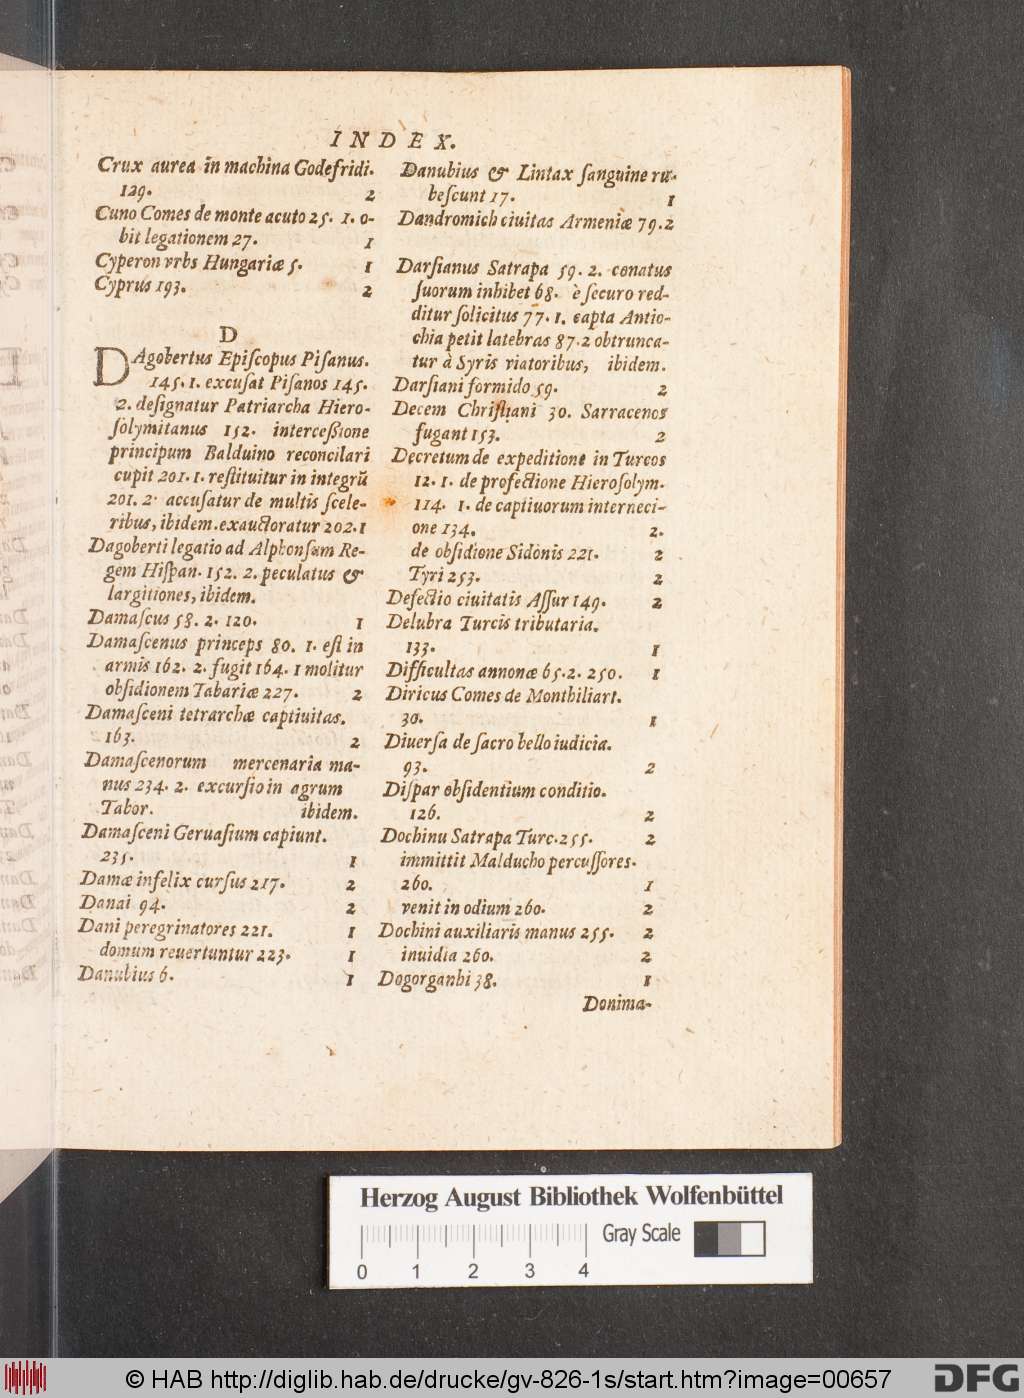 INDEX.
Crux aurea in machina Godefridi.
129. 2
Cuno Comes de monte acuto 25. 1. o-
bit legationem 27. 1
Cyperon vrbs Hungariæ 5. 1
Cyprus 193. 2
D
DAgobertus Episcopus Pisanus.
145. 1. excusat Pisanos 145.
2. designatur Patriarcha Hiero-
solymitanus 152. intercessione
principum Balduino reconciliari
cupit 201. 1. restituitur in integrũ
201. 2. accusatur de multis scele-
ribus, ibidem. exauctoratur 202. 1
Dagoberti legatio ad Alphonsum Re-
gem Hispan. 152. 2. peculatus &
largitiones, ibidem.
Damascus 58. 2. 120. 1
Damascenus princeps 80. 1. est in
armis 162. 2. fugit 164. 1 molitur
obsidionem Tabariæ 227. 2
Damasceni tetrarchæ captiuitas.
163. 2
Damascenorum mercenaria ma-
nus 234. 2. excursio in agrum
Tabor. ibidem.
Damasceni Geruasium capiunt.
235. 1
Damæ infelix cursus 217. 2
Danai 94. 2
Dani peregrinatores 221. 1
domum reuertuntur 223. 1
Danubius 6. 1
Danubius & Lintax sanguine ru-
bescunt 17. 1
Dandromich ciuitas Armeniæ 79. 2
Darsianus Satrapa 59. 2. conatus
suorum inhibet 68. è securo red-
ditur solicitus 77. 1. capta Antio-
chia petit latebras 87. 2 obtrunca-
tur à Syris viatoribus, ibidem.
Darsiani formido 59. 2
Decem Christiani 30. Sarracenos
fugant 153. 2
Decretum de expeditione in Turcos
12. 1. de profectione Hierosolym.
114. 1. de captiuorum interneci-
one 134. 2.
de obsidione Sidonis 221. 2
Tyri 253. 2
Defectio ciuitatis Assur 149. 2
Delubra Turcis tributaria.
133. 1
Difficultas annonæ 65. 2. 250. 1
Diricus Comes de Monthiliart.
30. 1
Diuersa de sacro bello iudicia.
93. 2
Dispar obsidentium conditio.
126. 2
Dochinu Satrapa Turc. 255. 2
immittit Malducho percussores.
260. 1
venit in odium 260. 2
Dochini auxiliaris manus 255. 2
inuidia 260. 2
Dogorganhi 38. 1
Donima-
Herzog August Bibliothek Wolfenbüttel
Gray Scale
0 1 2 3 4
© HAB http://diglib.hab.de/drucke/gv-826-1s/start.htm?image=00657
DFG